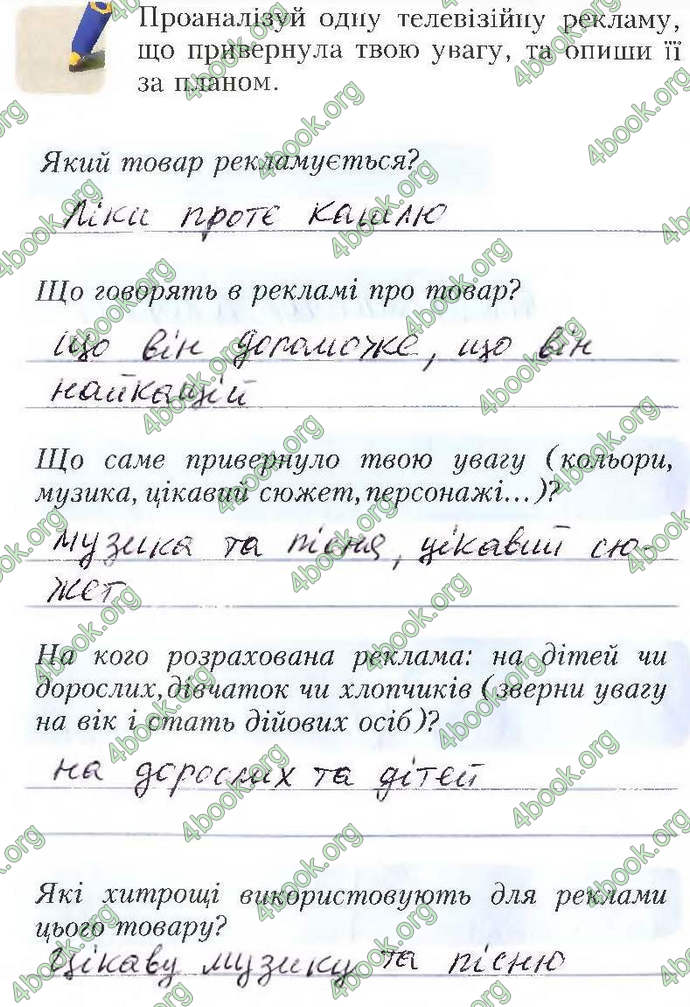 Проаналізуй одну телевізійну рекламу,
що привернула твою увагу, та опиши її
за планом.
Який товар рекламується?
Ліки проте кашлю
Що говорять в рекламі про товар?
що він допоможе, що він
найкащій
Що саме привернуло твою увагу (кольори,
музика, цікавий сюжет, персонажі...)?
музика та пісня, цікавий сю-
жет
На кого розрахована реклама: на дітей чи
дорослих, дівчаток чи хлопчиків (зверни увагу
на вік і стать дійових осіб)?
на дорослих та дітей
Які хитрощі використовують для реклами
цього товару?
Цікаву музику та пісню
4book.org